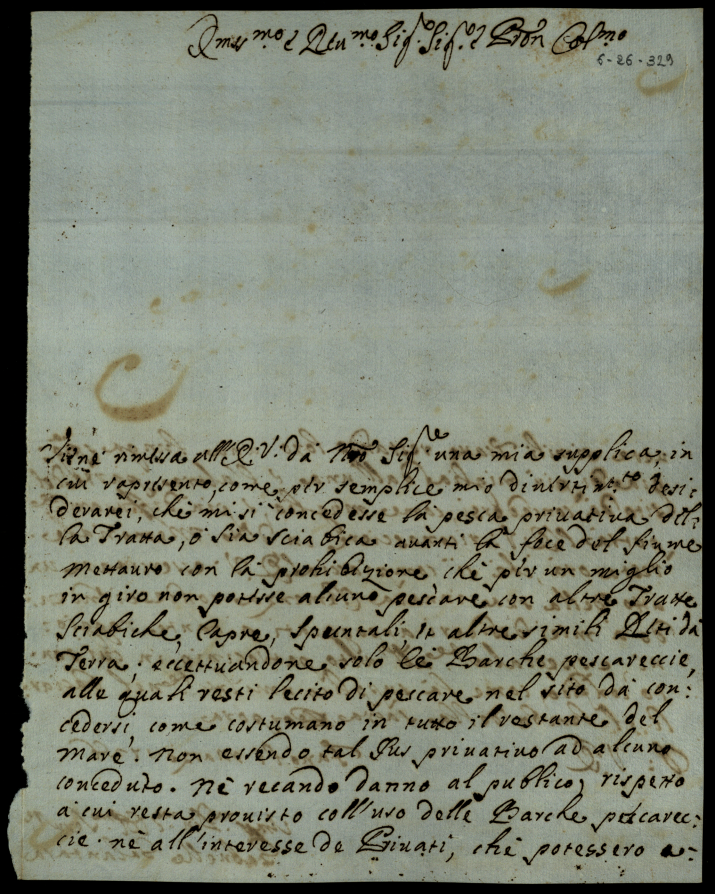 Emin.mo e Reu.mo Sig.e Sig.e e Pron Col.mo
6-26-329
Viene rimessa all'E. V. da Nro Sig.re una mia supplica, in
cui rapresento, come per semplice mio divertim.to desi:
derarei, che mi si concedesse la pesca privativa del:
la Tratta, ò sia sciabica avanti la foce del fiume
Mettauro con la prohibizione che per un miglio
in giro non potesse alcuno pescare con altre Tratte
Sciabiche, Capre, Spuntali, et altre simili Reti da
Terra; eccettuandone solo le Barche pescareccie,
alle quali resti lecito di pescare nel sito da con:
cedersi, come costumano in tutto il restante del
Mare. Non essendo tal Jus privativo ad alcuno
conceduto. Nè recando danno al publico, rispetto
a cui resta provisto coll'uso delle Barche pescarec:
cie. nè all'interesse de Privati, che potessero a: